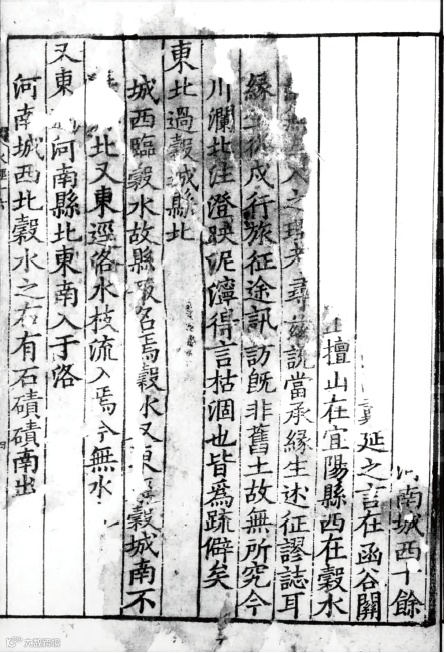 南城西十餘
延之言在函谷關
檀山在宜陽縣西在穀水
人之考尋茲說當承緣生述征謬誌耳
緣生從戍行旅征途訊訪既非舊土故無所究今
川瀾北注澄映泥濘得言枯涸也皆爲疏僻矣
東北過穀城縣北
城西臨穀水故縣取名焉穀水又東穀城南不
北又東逕洛水枝流入焉今無水
又東河南縣北東南入于洛
河南城西北穀水之在有石磧磧南出